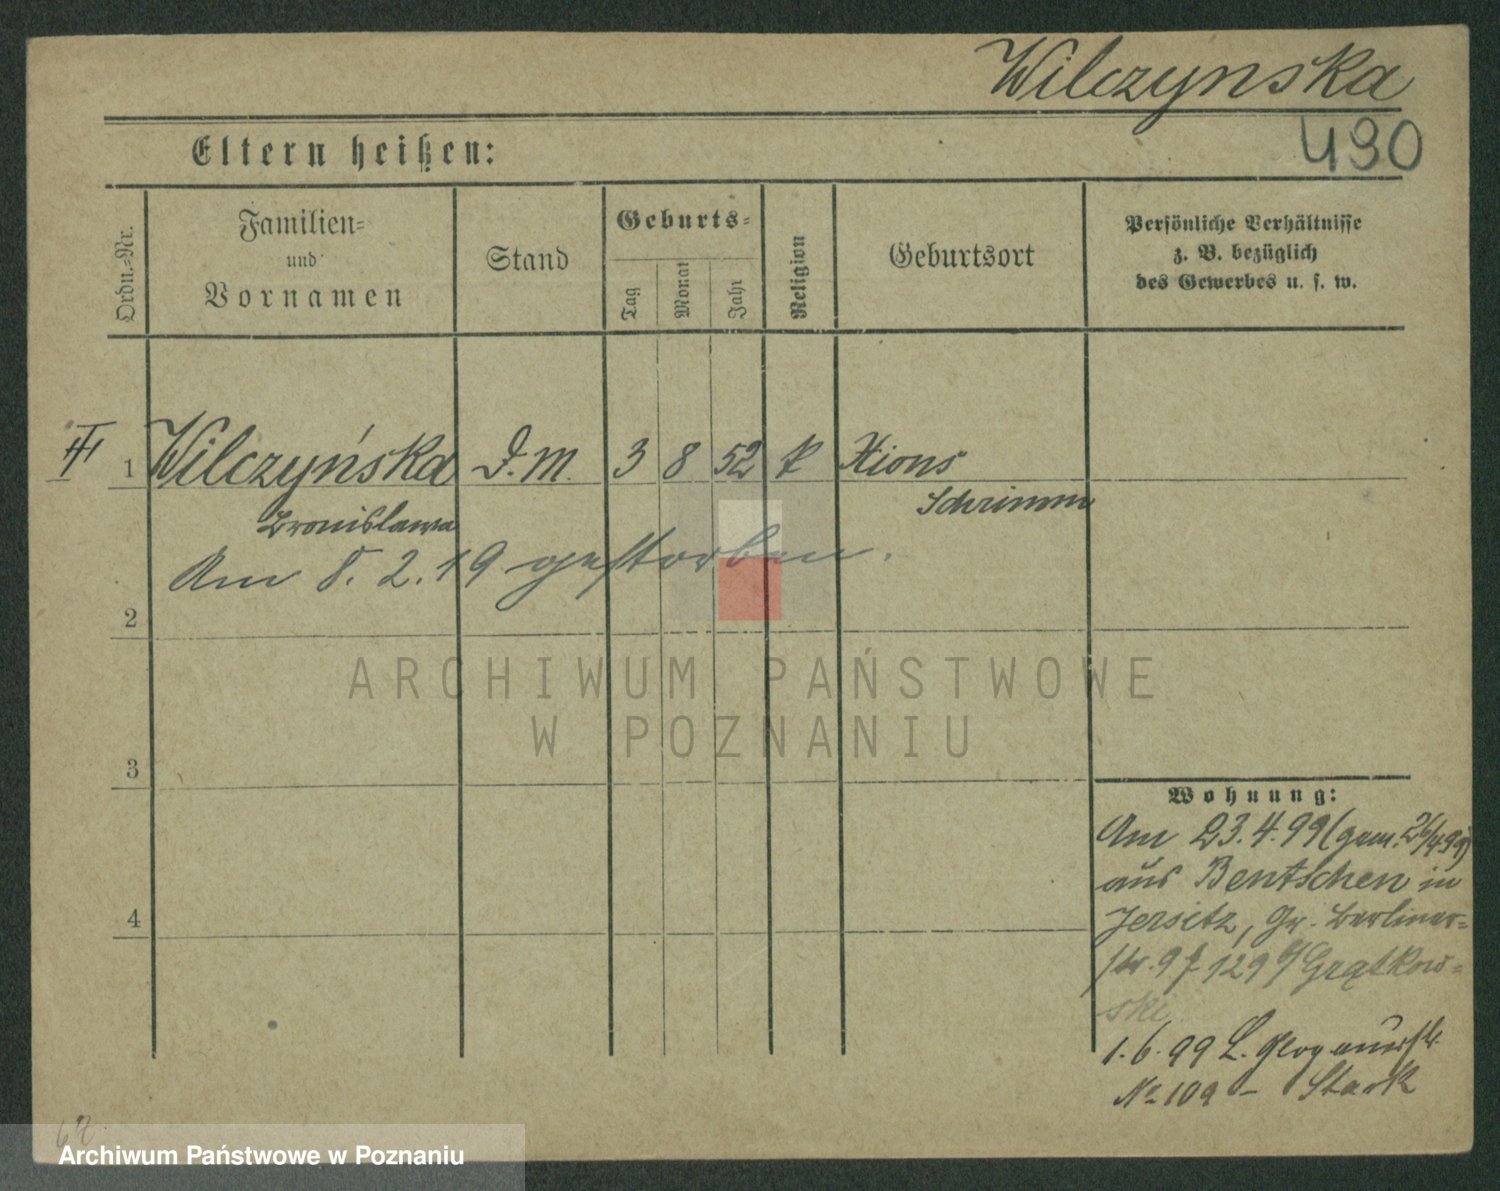 Wilczynska
490
Eltern heißen:
Ordn.-Nr.
Familien- und Vornamen
Stand
Geburts-
Tag
Monat
Jahr
Religion
Geburtsort
Persönliche Verhältnisse
z. B. bezüglich
des Gewerbes u. s. w.
III
1 Wilczyńska D.M. 3 8 52 k Xions
Bronislawa Schrimm
Am 8.2.19 gestorben.
2
ARCHIWUM PAŃSTWOWE
W POZNANIU
3
4
Wohnung:
Am 23.4.99 (gem. 26/4 99)
aus Bentschen in
Jersitz, Gr. Berliner-
str. 97 129 b/ Grątkow-
ski
1.6.99 L. Glogauerstr.
No 109 – Stark
Archiwum Państwowe w Poznaniu